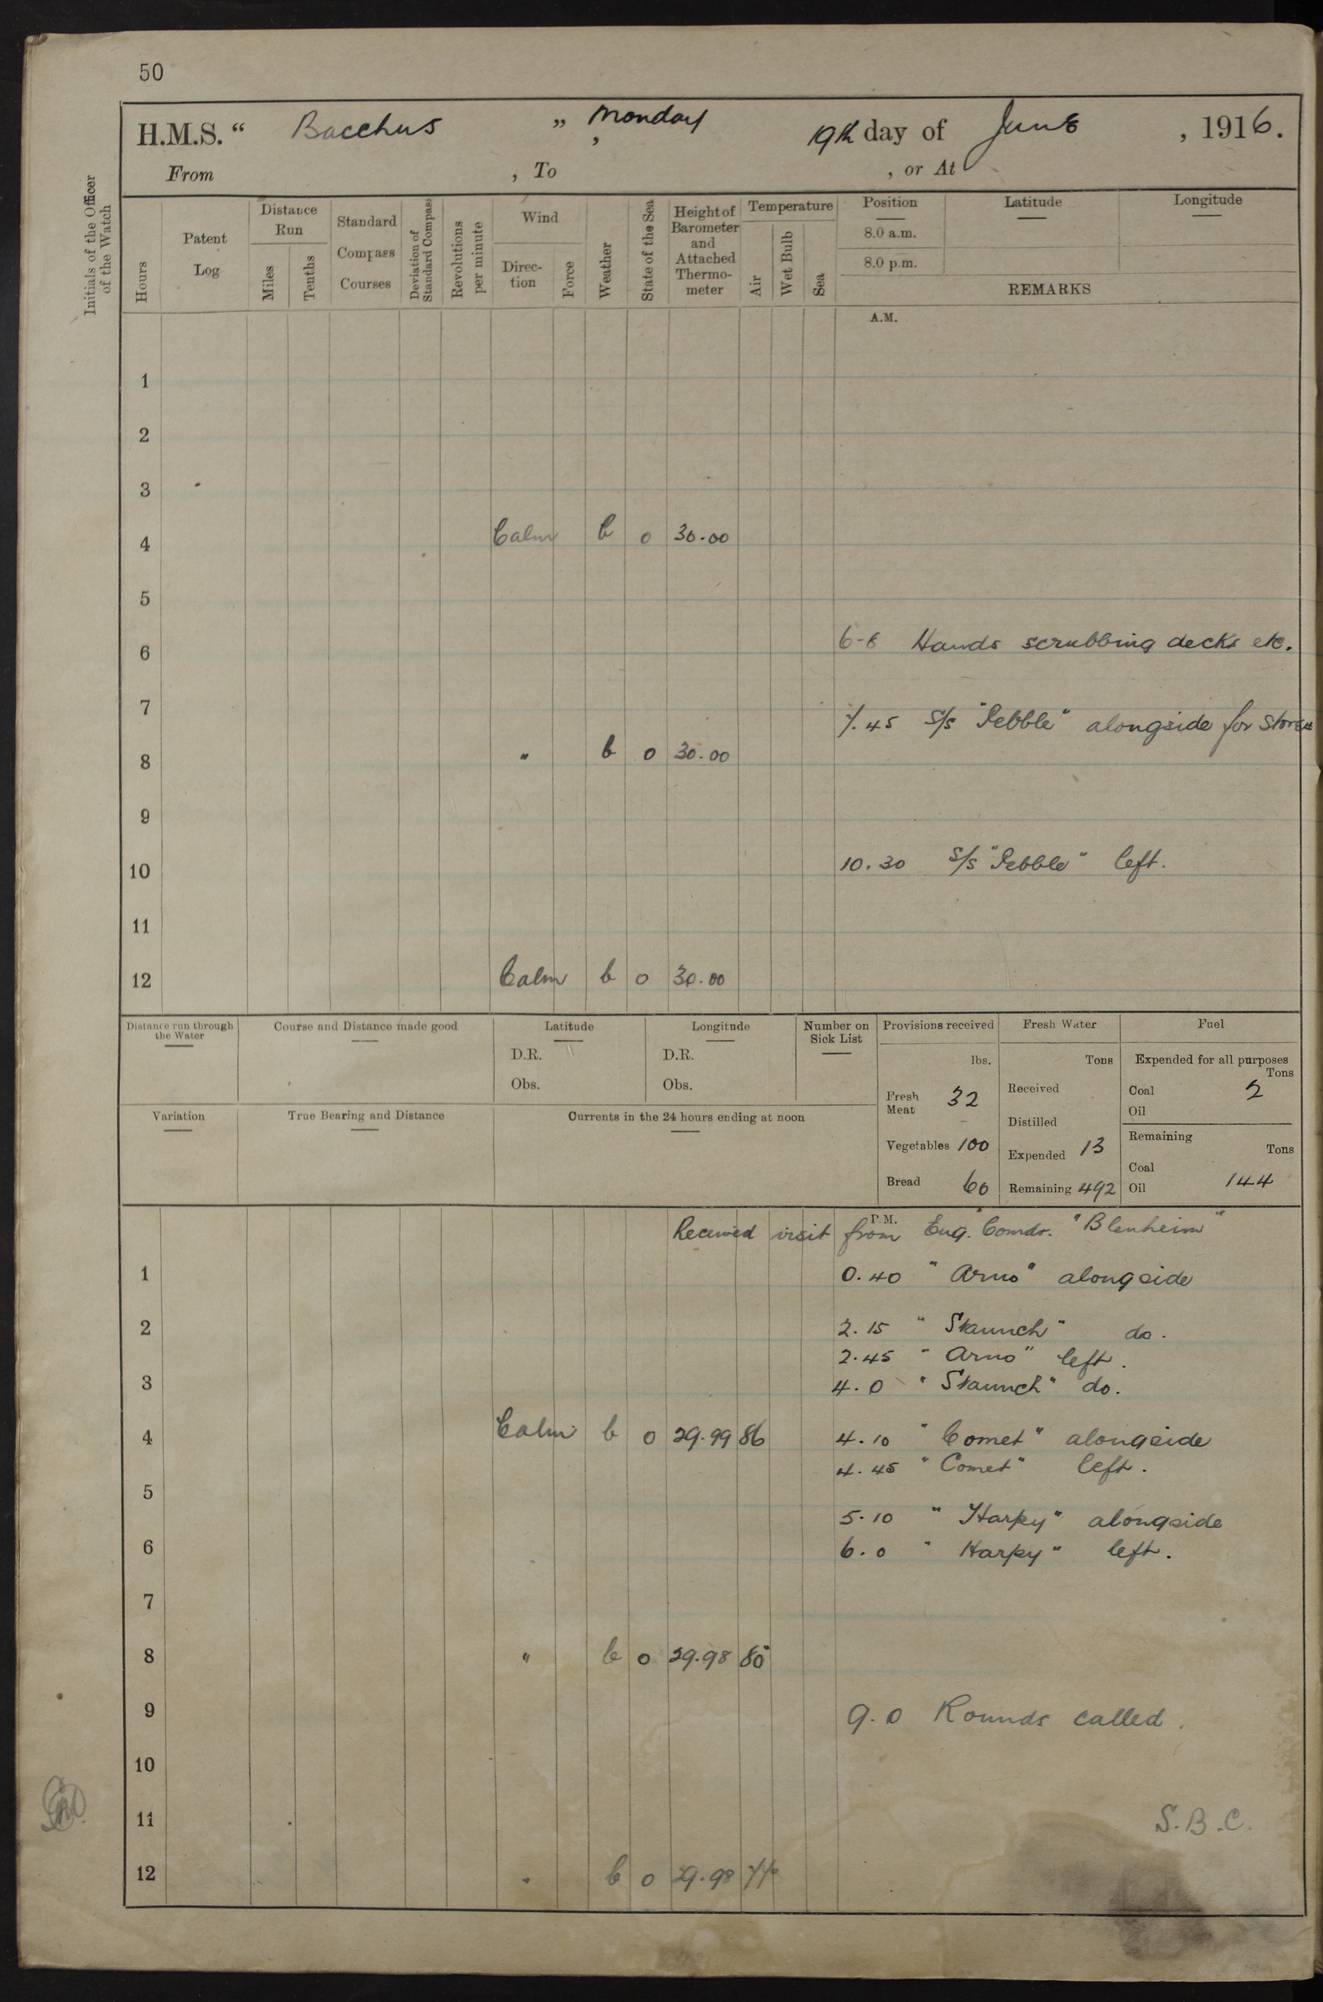 50
H.M.S. " Bacchus ", Monday 19th day of June, 1916.
From , To , or At
Initials of the Officer of the Watch
Hours
Patent Log
Distance Run
Miles
Tenths
Standard Compass Courses
Deviation of Standard Compass
Revolutions per minute
Wind
Direction
Force
Weather
State of the Sea
Height of Barometer and Attached Thermometer
Temperature
Air
Wet Bulb
Sea
Position
8.0 a.m.
8.0 p.m.
Latitude
Longitude
REMARKS
A.M.
1
2
3
4 Calm b 0 30.00
5
6 6-8 Hands scrubbing decks etc.
7 7.45 S/s "Pebble" alongside for stores
8 " b 0 30.00
9
10 10.30 S/s "Pebble" left.
11
12 Calm b 0 30.00
Distance run through the Water
Course and Distance made good
Latitude
D.R.
Obs.
Longitude
D.R.
Obs.
Number on Sick List
Variation
True Bearing and Distance
Currents in the 24 hours ending at noon
Provisions received
lbs.
Fresh Meat 32
Vegetables 100
Bread 60
Fresh Water
Tons
Received
Distilled
Expended 13
Remaining 492
Fuel
Expended for all purposes
Tons
Coal 2
Oil
Remaining
Tons
Coal
Oil 144
P.M.
Received visit from Eng. Comdr. "Blenheim"
1 0.40 "Arno" alongside
2 2.15 "Staunch" do.
2.45 "Arno" left.
3 4.0 "Staunch" do.
4 Calm b 0 29.99 86 4.10 "Comet" alongside
4.45 "Comet" left.
5
5.10 "Harpy" alongside
6 6.0 "Harpy" left.
7
8 " b 0 29.98 80
9 9.0 Rounds called.
10
11 S.B.C.
12 " b 0 29.98 77